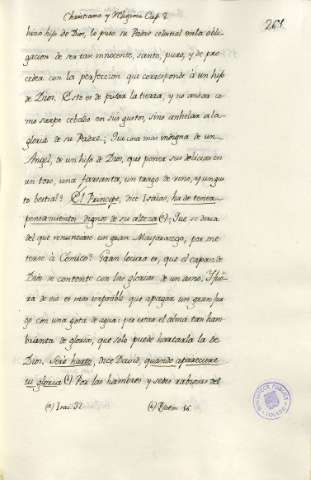 Christiano y Religioso Cap. 2.
261.
hizo hijo de Dios, le puso su Padre celestial en la obli-
gacion de ser tan innocente, santo, puro, y de pro-
ceder con la perfeccion que corresponde à un hijo
de Dios. Esto es de pisar la tierra, y no andar co-
mo sierpe cebado en sus gustos, sino anhelar a la
gloria de su Padre. ¿Que cosa mas indigna de un
Angel, de un hijo de Dios, que poner sus delicias en
un toro, una farsanta, un trago de vino, y un gus-
to bestial? El Principe, dice Isaias, ha de tener
pensamientos dignos de su alteza (a) ¿Que se diria
del que renunciare un gran Mayorazgo, por me-
terse à Comico? Gran locura es, que el capaz de
Dios se contente con las glorias de un sueño. Hijo
de no es mas imposible que apagar un gran fue-
go con una gota de agua: por estar el alma tan ham-
brienta de gloria, que solo puede hartarla la de
Dios. Seré harto, dice David, quando apareciere
tu gloria (b) Por las hambres y sedes rabiosas del
(a) Isai. 32. (b) Psalm. 16.